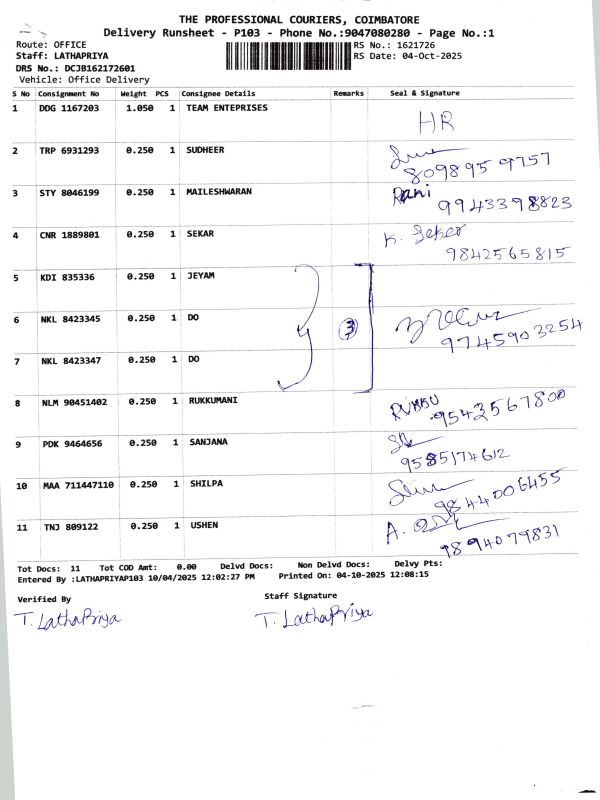 THE PROFESSIONAL COURIERS, COIMBATORE
Delivery Runsheet - P103 - Phone No.:9047080280 - Page No.:1
Route: OFFICE RS No.: 1621726
Staff: LATHAPRIYA RS Date: 04-Oct-2025
DRS No.: DCJB162172601
Vehicle: Office Delivery
S No Consignment No Weight PCS Consignee Details Remarks Seal & Signature
1 DDG 1167203 1.050 1 TEAM ENTEPRISES HR
2 TRP 6931293 0.250 1 SUDHEER
8098959757
3 STY 8046199 0.250 1 MAILESHWARAN Rani
9943398823
4 CNR 1889801 0.250 1 SEKAR K. Seker
9842565815
5 KDI 835336 0.250 1 JEYAM
6 NKL 8423345 0.250 1 DO 3
9745903254
7 NKL 8423347 0.250 1 DO
8 NLM 90451402 0.250 1 RUKKUMANI RUKKU
9543567800
9 PDK 9464656 0.250 1 SANJANA
9585174612
10 MAA 711447110 0.250 1 SHILPA
9844006455
11 TNJ 809122 0.250 1 USHEN A.
9894079831
Tot Docs: 11 Tot COD Amt: 0.00 Delvd Docs: Non Delvd Docs: Delvy Pts:
Entered By :LATHAPRIYAP103 10/04/2025 12:02:27 PM Printed On: 04-10-2025 12:08:15
Verified By Staff Signature
T. LathaPriya T. LathaPriya